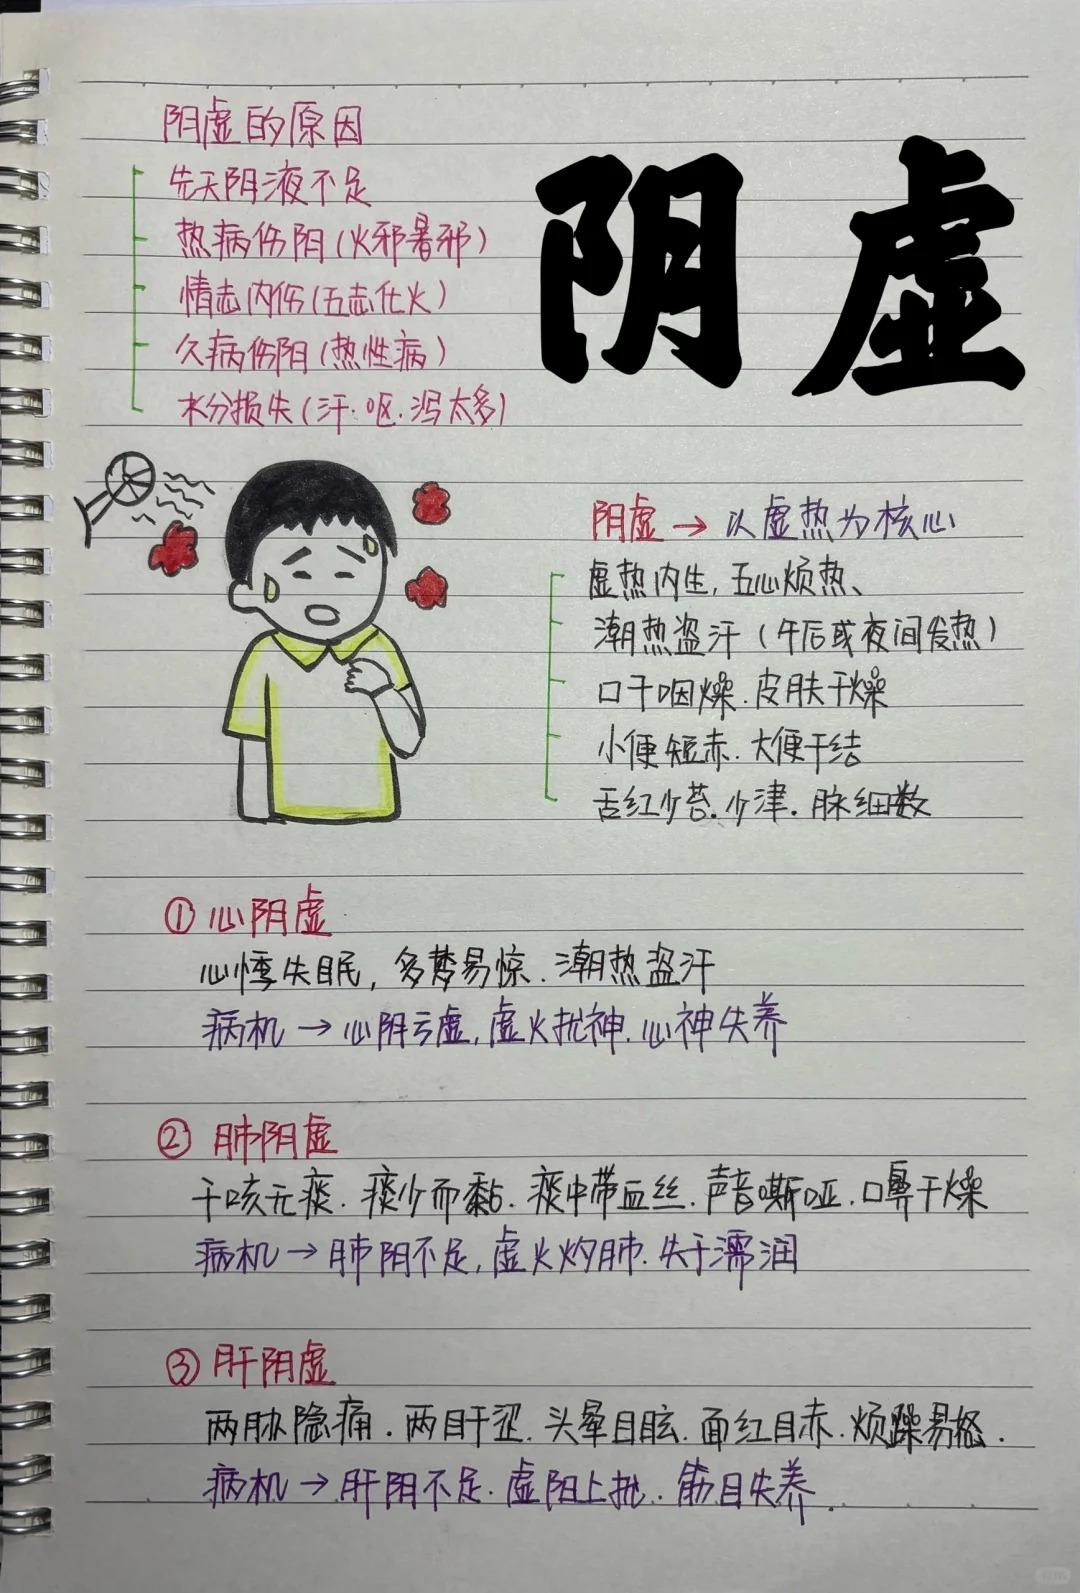 阴虚
阴虚的原因
先天阴液不足
热病伤阴(火邪暑邪)
情志内伤(五志化火)
久病伤阴(热性病)
水分损失(汗.呕.泻太多)
阴虚→以虚热为核心
虚热内生,五心烦热、
潮热盗汗(午后或夜间发热)
口干咽燥.皮肤干燥
小便短赤.大便干结
舌红少苔.少津.脉细数
①心阴虚
心悸失眠,多梦易惊.潮热盗汗
病机→心阴亏虚,虚火扰神.心神失养
②肺阴虚
干咳无痰.痰少而黏.痰中带血丝.声音嘶哑.口鼻干燥
病机→肺阴不足,虚火灼肺.失于濡润
③肝阴虚
两胁隐痛.两目干涩.头晕目眩.面红目赤.烦躁易怒.
病机→肝阴不足.虚阳上扰.筋目失养.